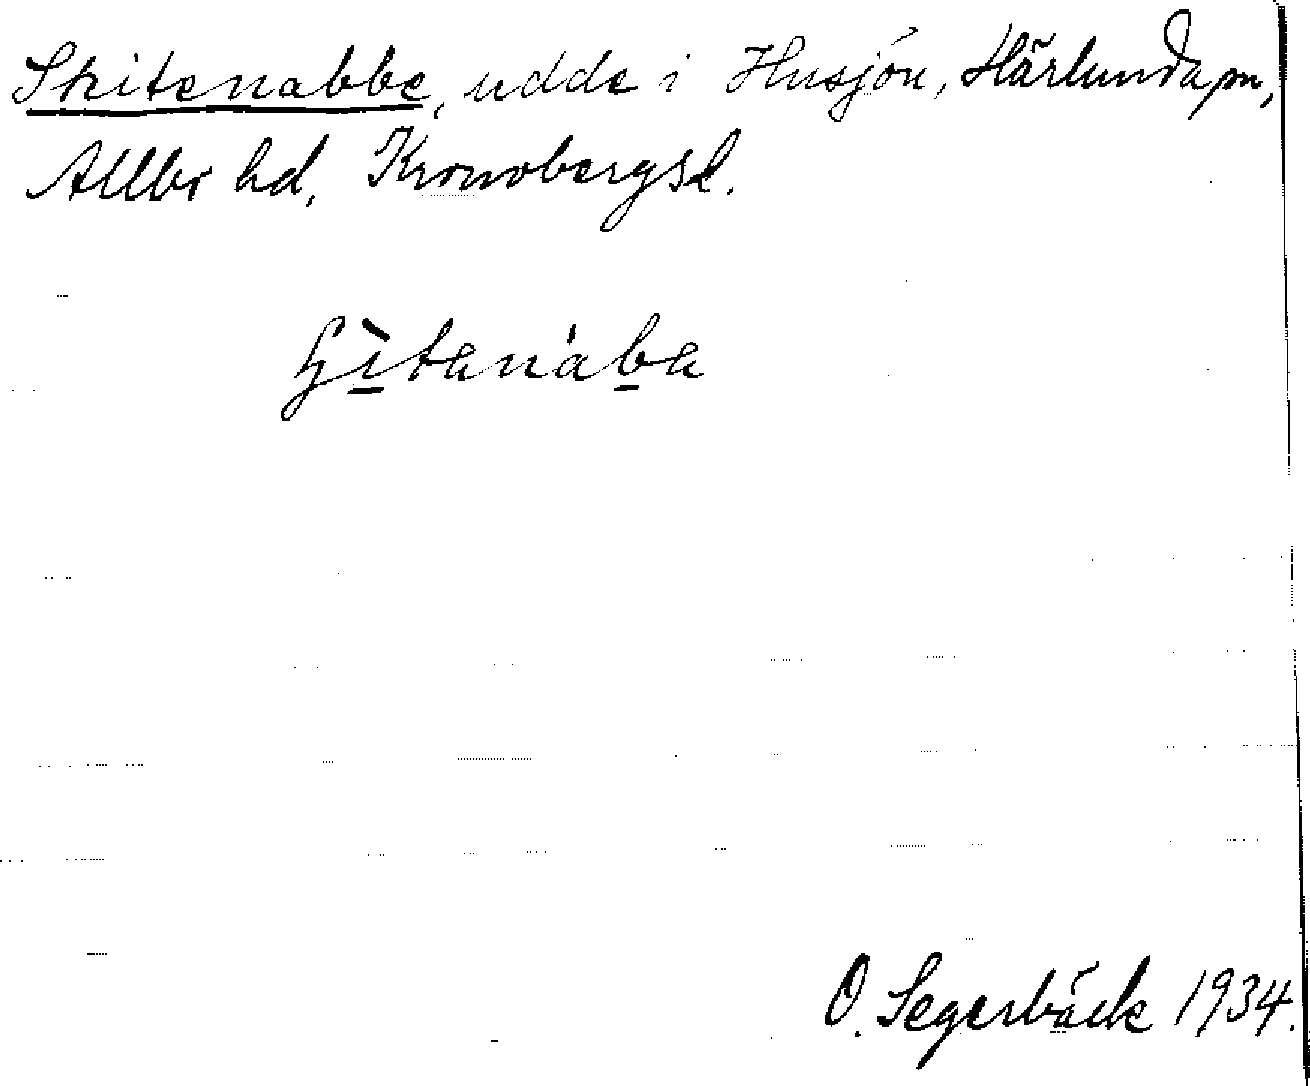 Skitenabbe, udde i Husjön, Härlunda sn,
Allbo hd, Kronobergs l.
O. Segerbäck 1934.